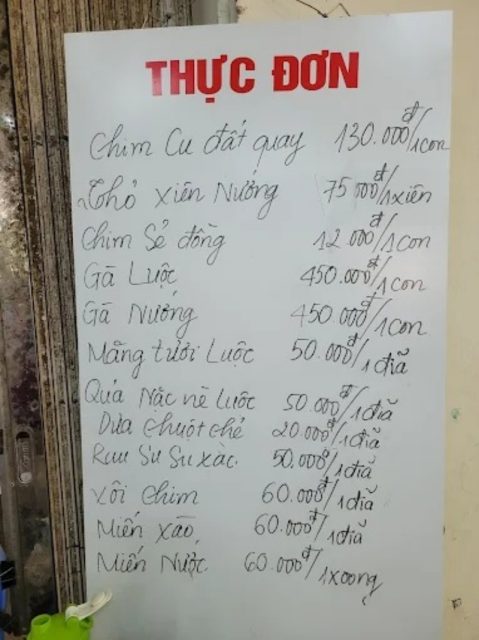 THỰC ĐƠN
Chim Cu đất quay 130.000đ/1con
Thỏ xiên Nướng 75000đ/1xiên
Chim Sẻ đồng 12.000đ/1con
Gà Luộc 450.000đ/1con
Gà Nướng 450.000đ/1con
Măng tươi Luộc 50.000đ/1đĩa
Quả Nặc nè Luộc 50.000đ/1đĩa
Dưa chuột chẻ 20.000đ/1đĩa
Rau Su Su xào. 50.000đ/1đĩa
Xôi Chim 60.000đ/1đĩa
Miến xào 60.000đ/1đĩa
Miến Nước 60.000đ/1xoong